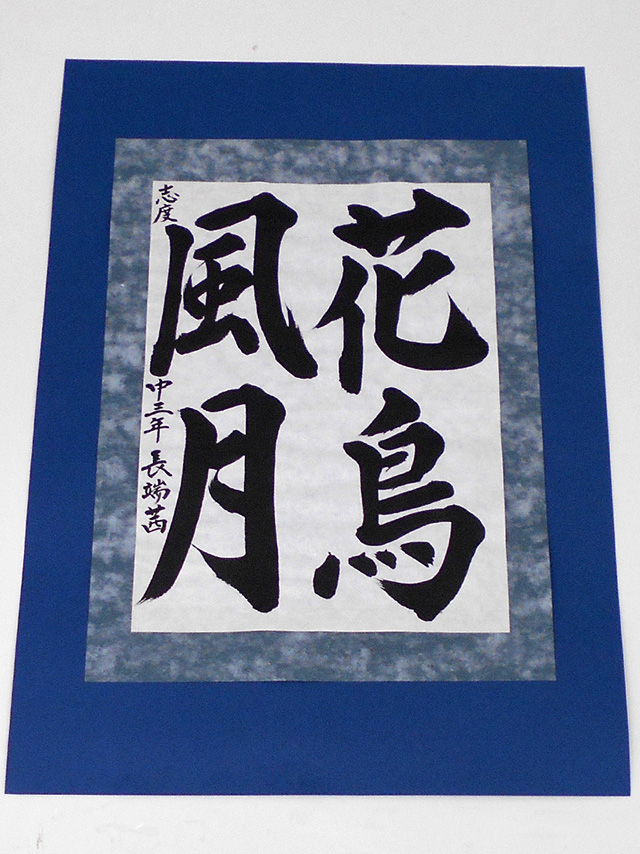 花鳥
風月
志度 中三年 長端茜